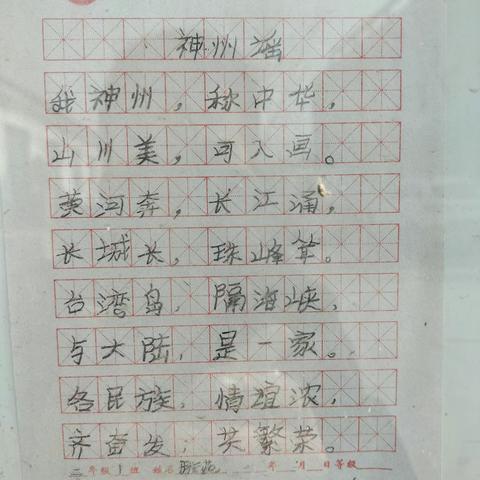 神州谣
我神州，称中华，
山川美，可入画。
黄河奔，长江涌，
长城长，珠峰耸。
台湾岛，隔海峡，
与大陆，是一家。
各民族，情谊浓，
齐奋发，共繁荣。
二年级1班 姓名 年 月 日 等级